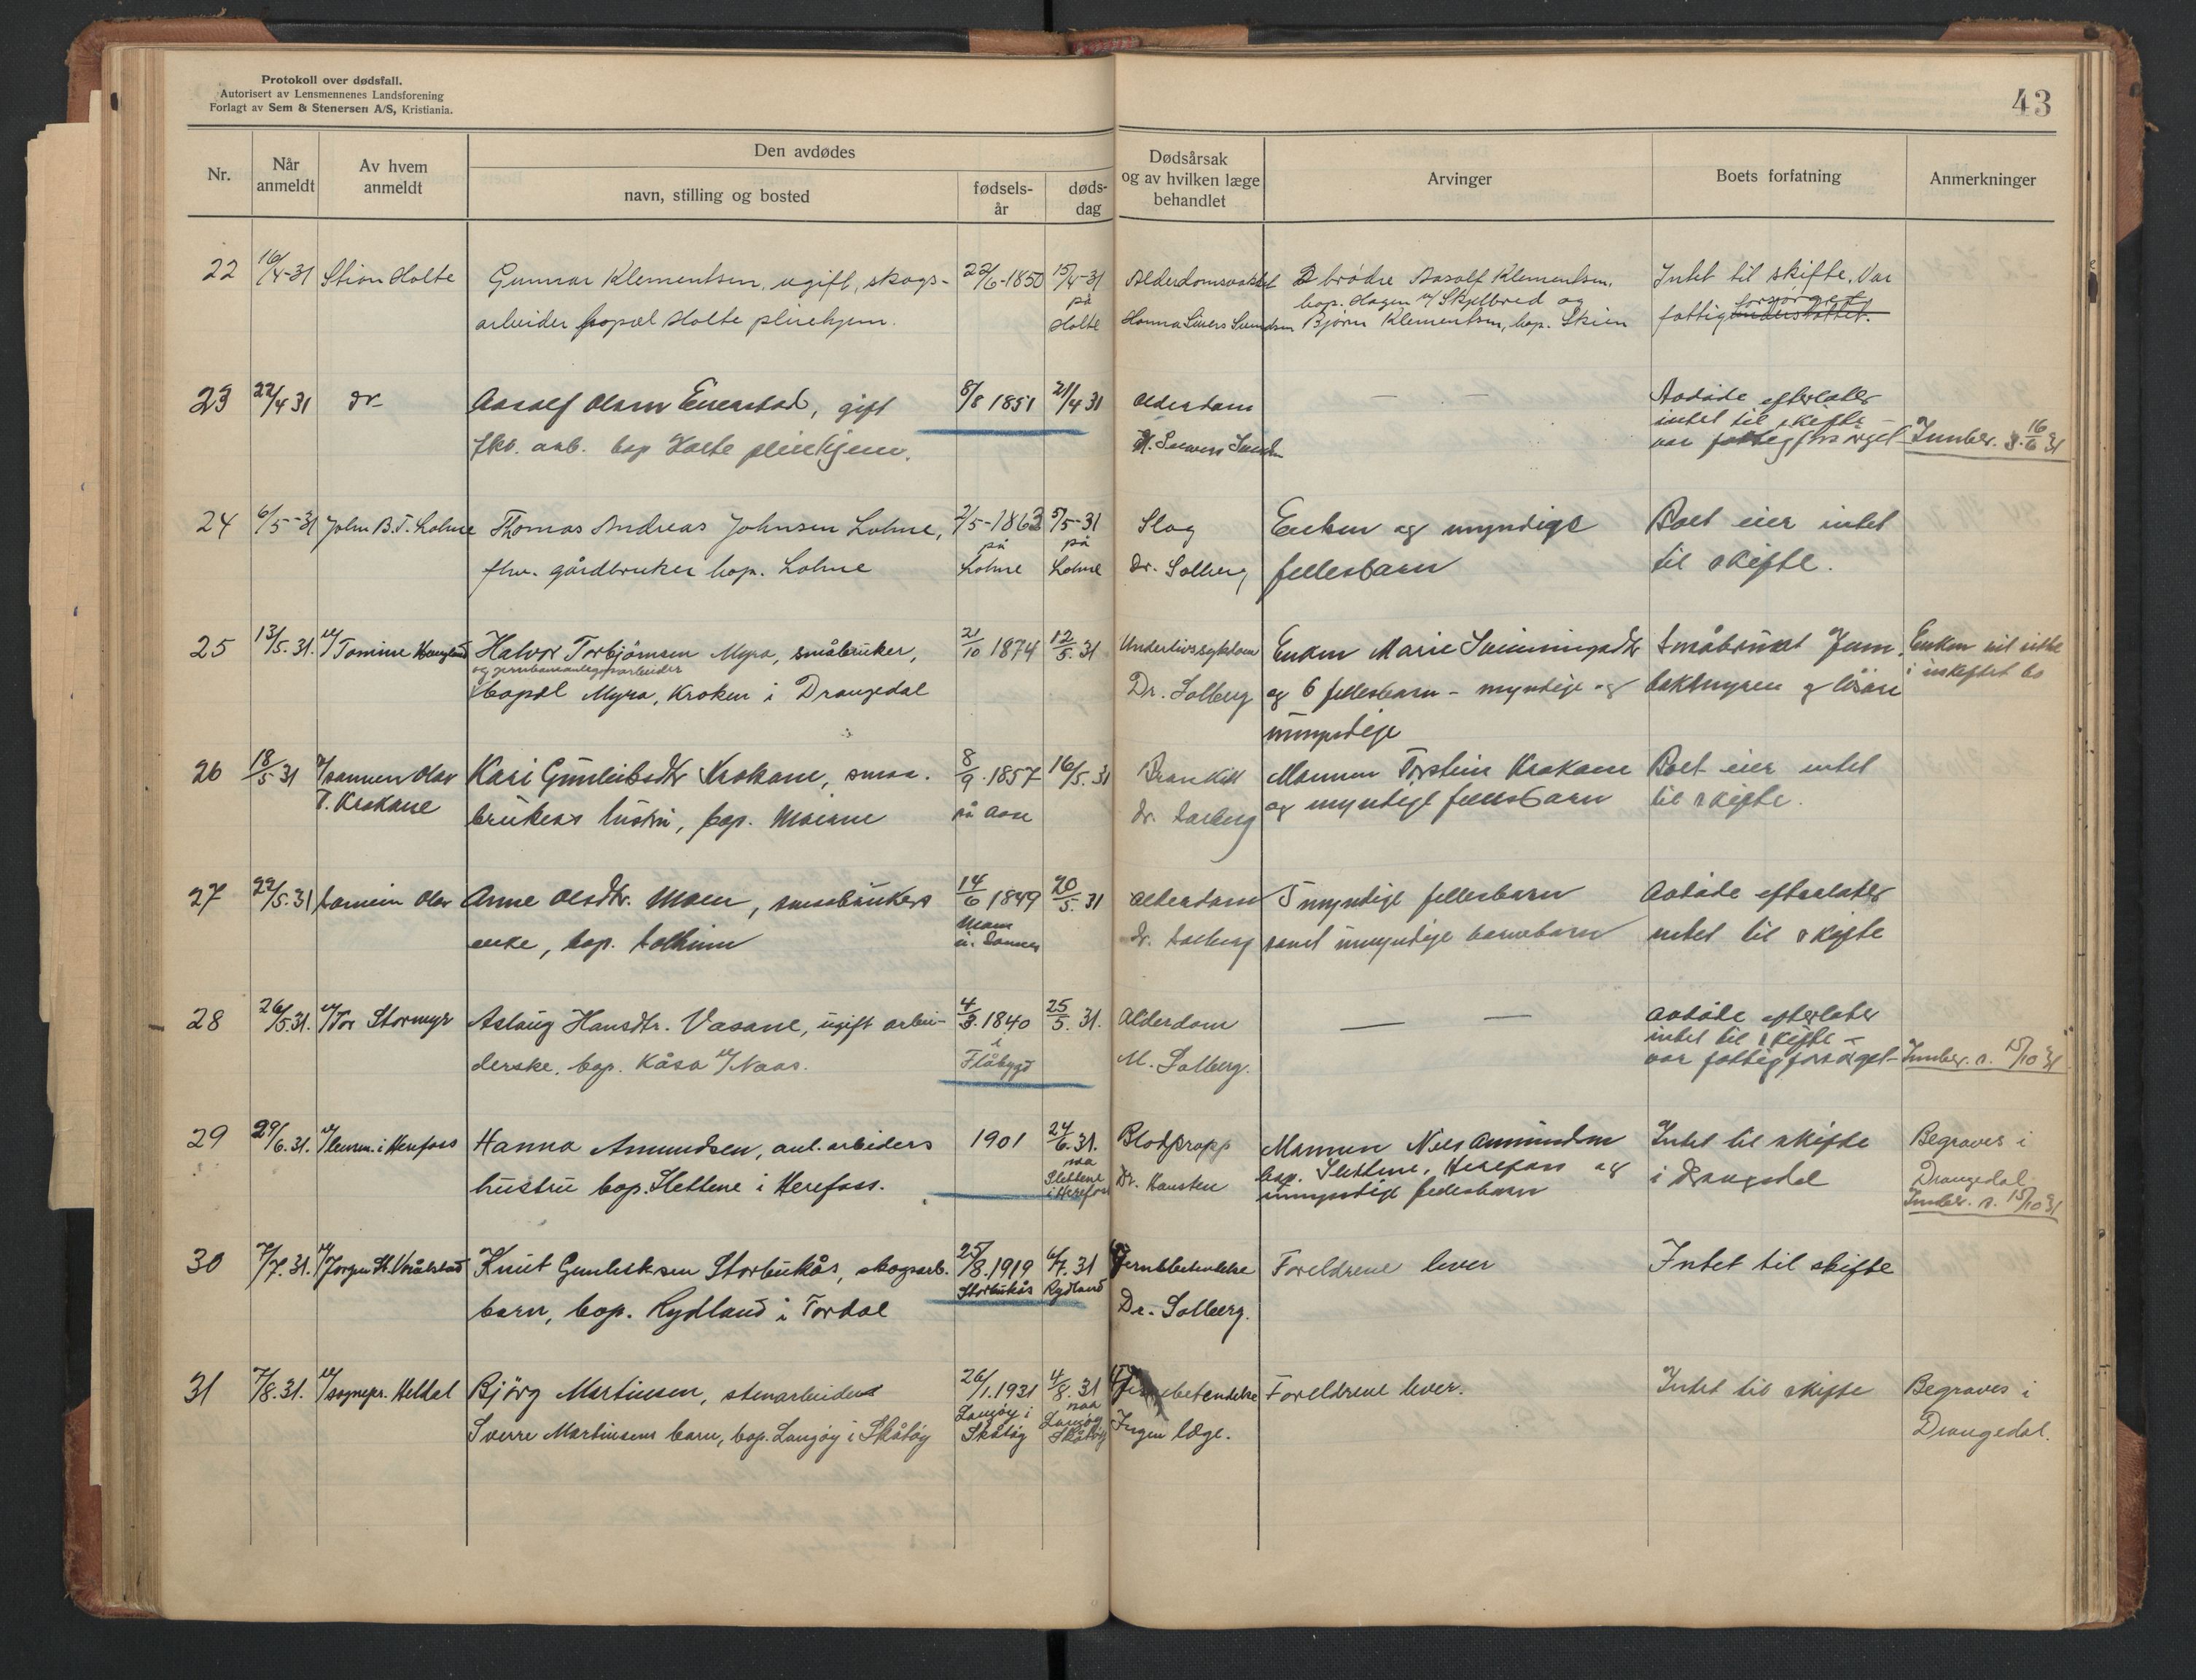 Protokoll over dødsfall.
Autorisert av Lensmennenes Landsforening
Forlagt av Sem & Stenersen A/S, Kristiania.
43
Nr.
Når anmeldt
Av hvem anmeldt
Den avdødes
navn, stilling og bosted
fødsels-år
døds-dag
Dødsårsak og av hvilken læge behandlet
Arvinger
Boets forfatning
Anmerkninger
22 16/4-31 Holte Gunnar Klementsen, ugift, skogs- 22/6-1850 15/4-31 2 brødre Aasolf Klementsen, Intet til skifte. Var
arbeider bopæl Holte pleiehjem. på Holte bop. Hagen v/ Skjelbred og Bjørn Klementsen, bop. Skien fattig forsørget
23 22/4 31 Aasolf Olsen, gift 8/8 1851 21/4 31 Alderdom — — Avdøde efterlater
arb. bop Holte pleiehjem. intet til skifte –
var fattigforsørget Innber. 16/6 31
24 6/5-31 John B.T. Lohne Thomas Andreas Johnsen Lohne, 2/5-1863 5/5-31 Slag Enken og myndige Boet eier intet
fhv. gårdbruker bop. Lohne på Lohne på Lohne Dr. Solberg fellesbarn til skifte.
25 13/5.31. v/ Tomine Haugland Halvor Torbjørnsen Myra, småbruker, 21/10 1874 12/5.31 Underlivssykdom Enken Marie Småbruket Enken vil sitte
og jernbaneanlegsarbeider
bopæl Myra, Kroken i Drangedal Dr. Solberg og 6 fellesbarn – myndige og og løsøre i uskiftet bo
umyndige
26 18/5 31 Olav Kari Gunleiksdtr Krokane, smaa- 8/9.1857 16/5.31 Mannen Torstein Krokane Boet eier intet
T. Krokane brukers hustru, bop. på Aase Dr. Solberg og myndige fellesbarn til skifte.
27 22/5.31 Anne Olsdtr. Moen, smaabrukers 14/6 1849 20/5.31 Alderdom 5 myndige fellesbarn Avdøde efterlater
enke, bop. Dr. Solberg samt umyndige barnebarn intet til skifte
28 26/5.31. v/ Tor Stormyr Aslaug Hansdtr. Vasane, ugift arbei- 4/3.1840 25/5.31. Alderdom — — Avdøde efterlater
derske, bop. Kåsa v/ Naas. i Flåbygd Solberg. intet til skifte –
var fattigforsørget – Innber. s. 15/10 31
29 29/6.31. v/ lensm. i Herefoss Hanna Amundsen, anl. arbeiders 1901 24/6.31. Blodpropp Mannen Nils Amundsen Intet til skifte Begraves i
hustru bop. Slettene i Herefoss. paa Slettene i Herefoss Dr. bop. Slettene, Herefoss og i Drangedal Drangedal
umyndige fellesbarn Innber. s. 15/10 31
30 7/7.31. v/ Jørgen Knut Gunleiksen Storbukås, skogsarb. 25/8.1919 6/7.31 Foreldrene lever Intet til skifte
barn, bop. Rydland i Tørdal Storbukås Rydland Dr. Solberg.
31 7/8.31. v/ sognepr. Heldal Bjørg Martinsen, stenarbeider 26/1.1931 4/8.31 Foreldrene lever. Intet til skifte Begraves i
Sverre Martinsens barn, bop. Langøy i Skåtøy Langøy i Skåtøy paa Langøy Skåtøy Ingen læge. Drangedal.